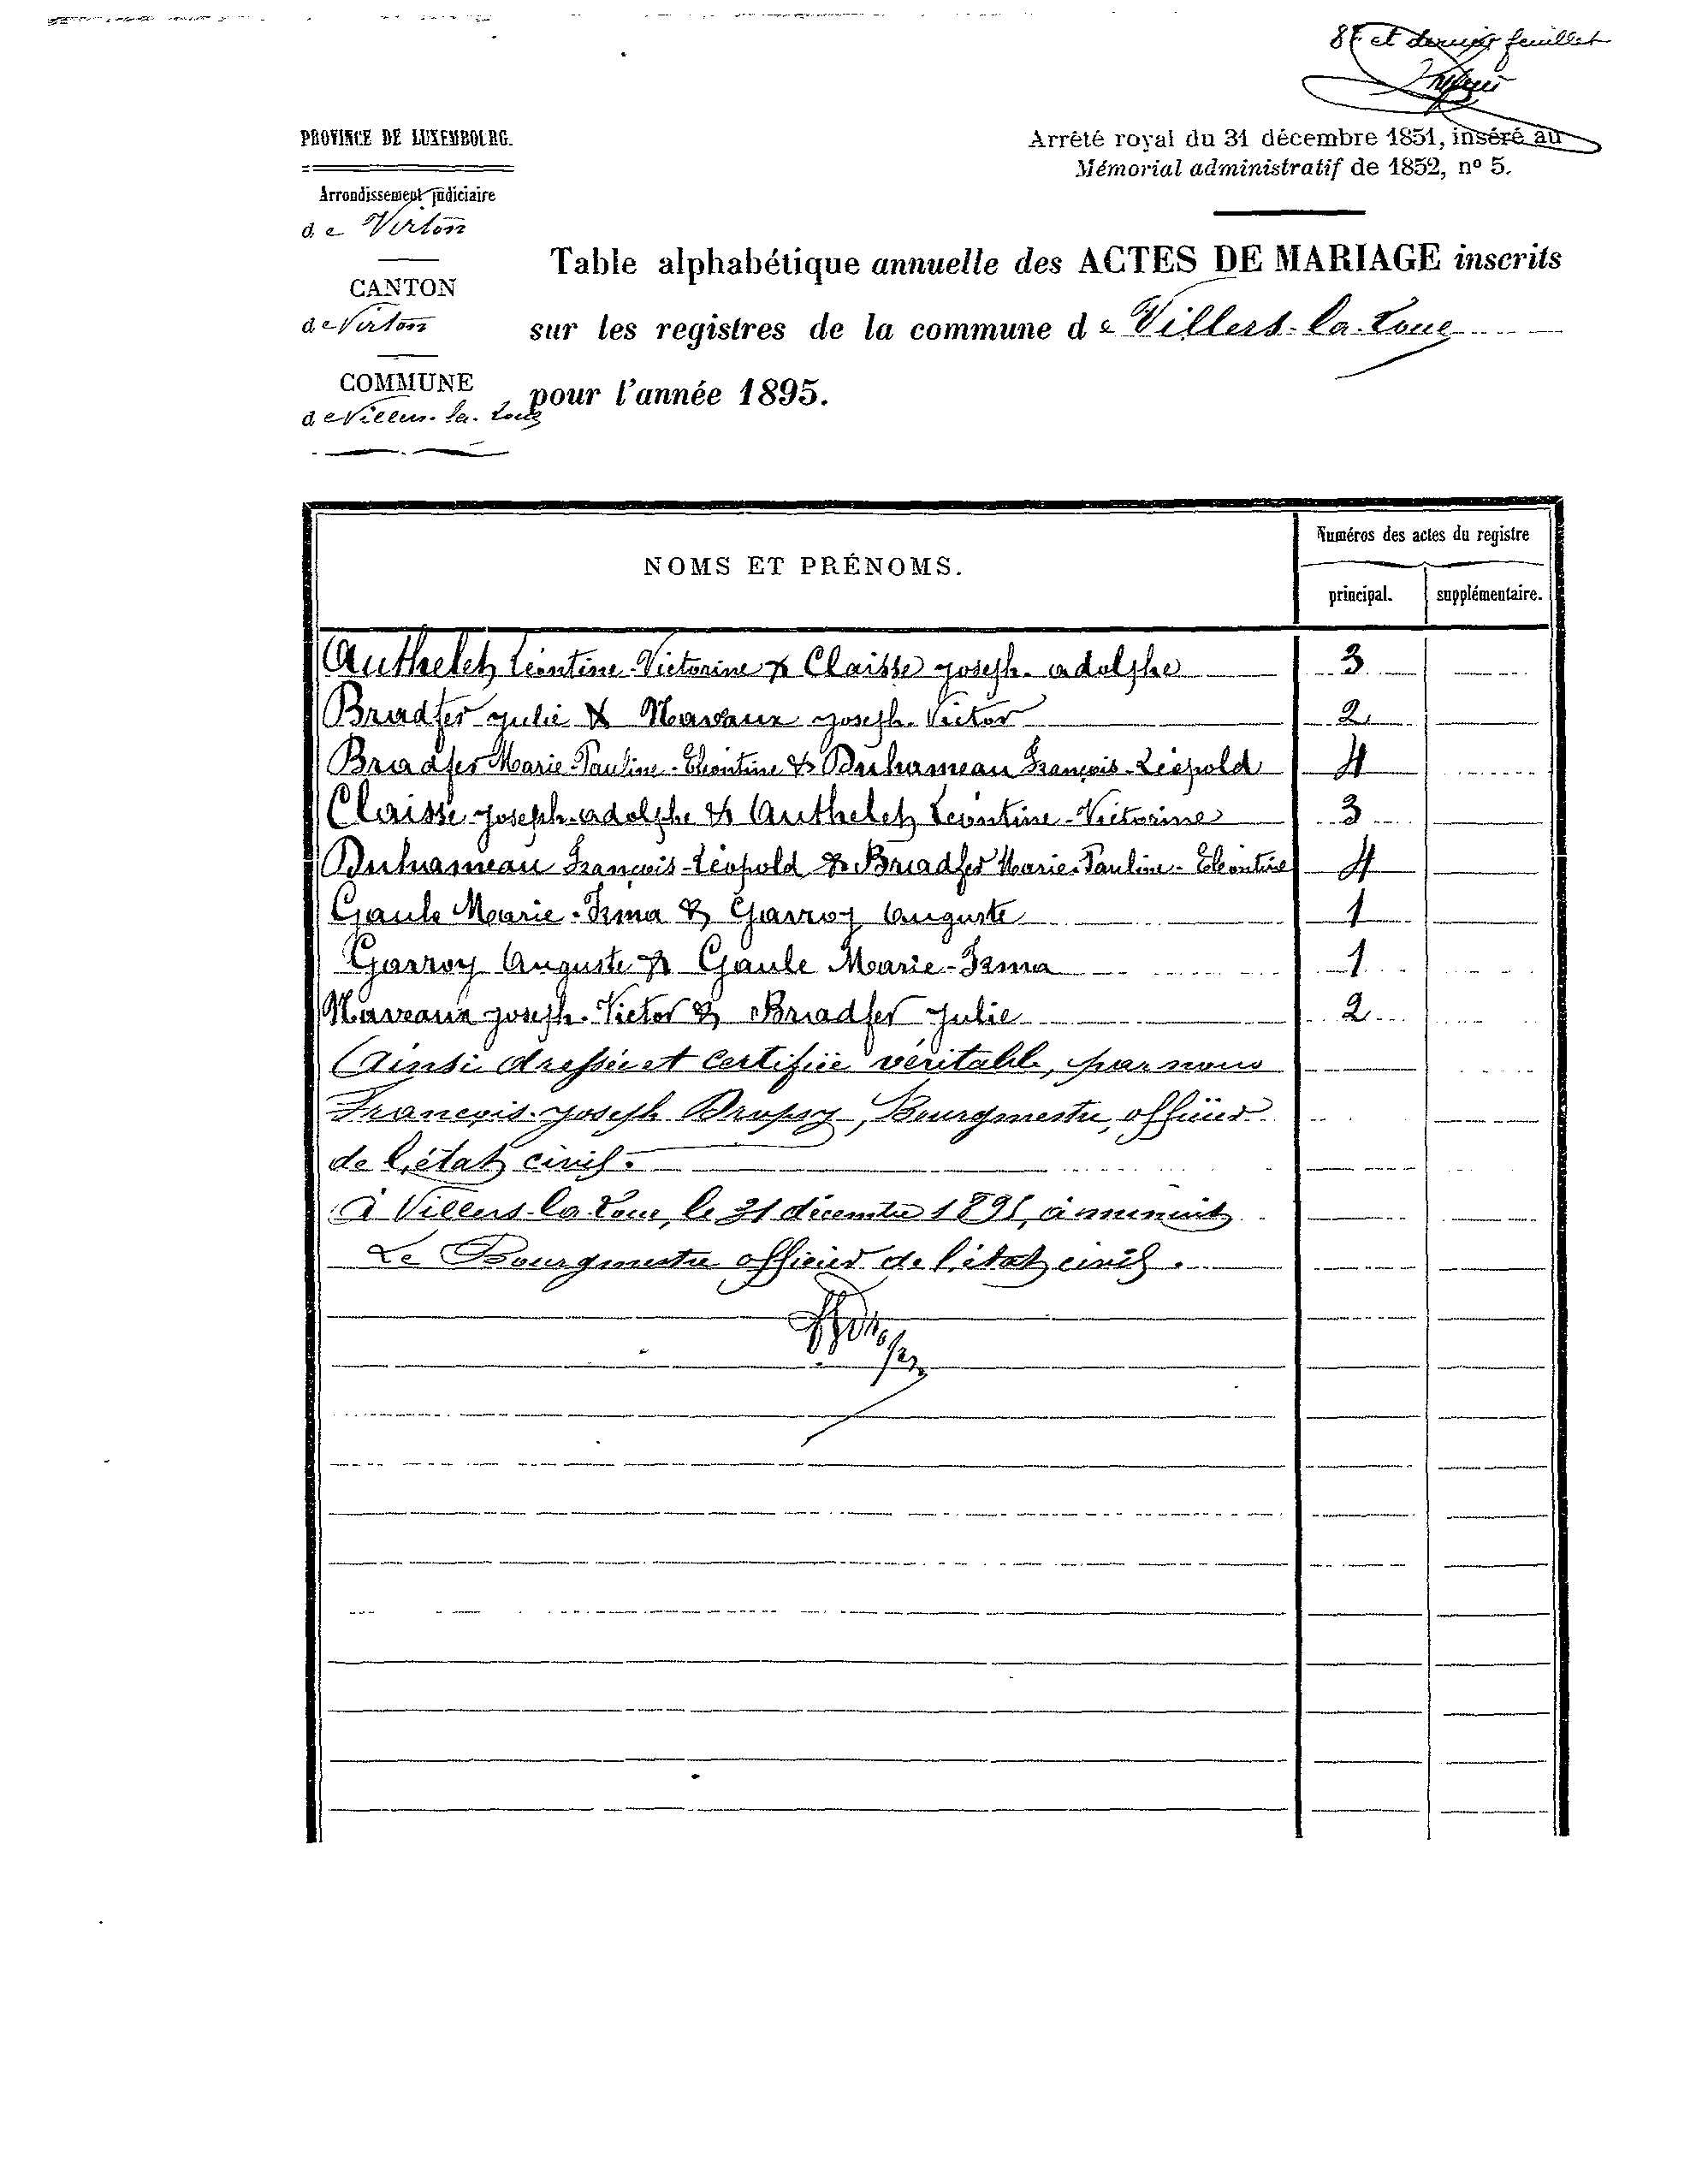 8e et dernier feuillet
PROVINCE DE LUXEMBOURG.
Arrêté royal du 31 décembre 1851, inséré au
Mémorial administratif de 1852, nº 5.
Arrondissement judiciaire
de Virton
CANTON
de Virton
COMMUNE
de Villers-la-Loue
Table alphabétique annuelle des ACTES DE MARIAGE inscrits
sur les registres de la commune de Villers-la-Loue
pour l'année 1895.
NOMS ET PRÉNOMS.
Numéros des actes du registre
principal. supplémentaire.
Authelet Léontine-Victorine & Claisse joseph-adolphe 3
Bradfer julie & Navaux joseph-Victor 2
Bradfer Marie-Pauline-Eléontine & Duhameau François-Léopold 4
Claisse joseph-adolphe & Authelet Léontine-Victorine 3
Duhameau François-Léopold & Bradfer Marie-Pauline-Eléontine 4
Gaule Marie-Irma & Garroy Auguste 1
Garroy Auguste & Gaule Marie-Irma 1
Navaux joseph-Victor & Bradfer julie 2
Ainsi dressée et certifiée véritable, par nous
François-joseph Dropsy, Bourgmestre, officier
de l'état civil.
à Villers-la-Loue, le 31 décembre 1895, à minuit
Le Bourgmestre officier de l'état civil.